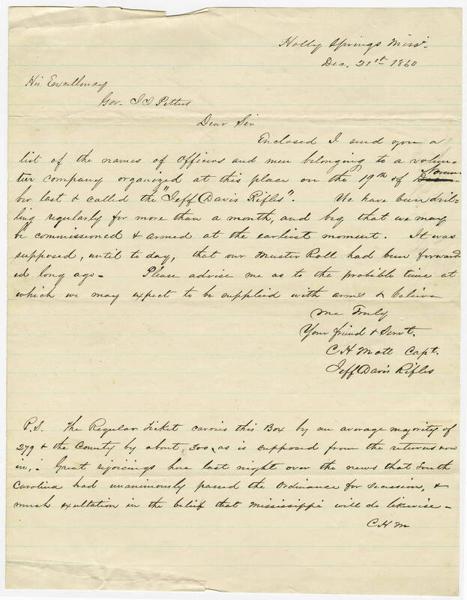 Holly Springs Miss.
Dec. 21st 1860
His Excellency
Gov. J J Pettus
Dear Sir
Enclosed I send you a
list of the names of officers and men belonging to a volun-
tier company organized at this place on the 19th of Novem
ber last & called the "Jeff Davis Rifles". We have been dril-
ling regularly for more than a month, and beg that we may
be commissioned & armed at the earliest moment. It was
supposed, until to day, that our Muster Roll had been forward
ed long ago - Please advise me as to the probible time at
which we may expect to be supplied with arms & believe
me Truly
Your friend & Servt.
C H Mott Capt.
Jeff Davis Rifles
P.S. The Regular Ticket carries this Box by an average majority of
279 & the County by about 300, as is supposed from the returns now
in. - Great rejoicings here last night over the news that South
Carolina had unanimously passed the Ordinance for secession, &
much exultation in the belief that Mississippi will do likewise -
C H M